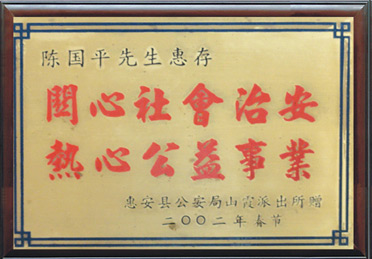 陈国平先生惠存
關心社會治安
熱心公益事業
惠安县公安局山霞派出所赠
二〇〇二年春节